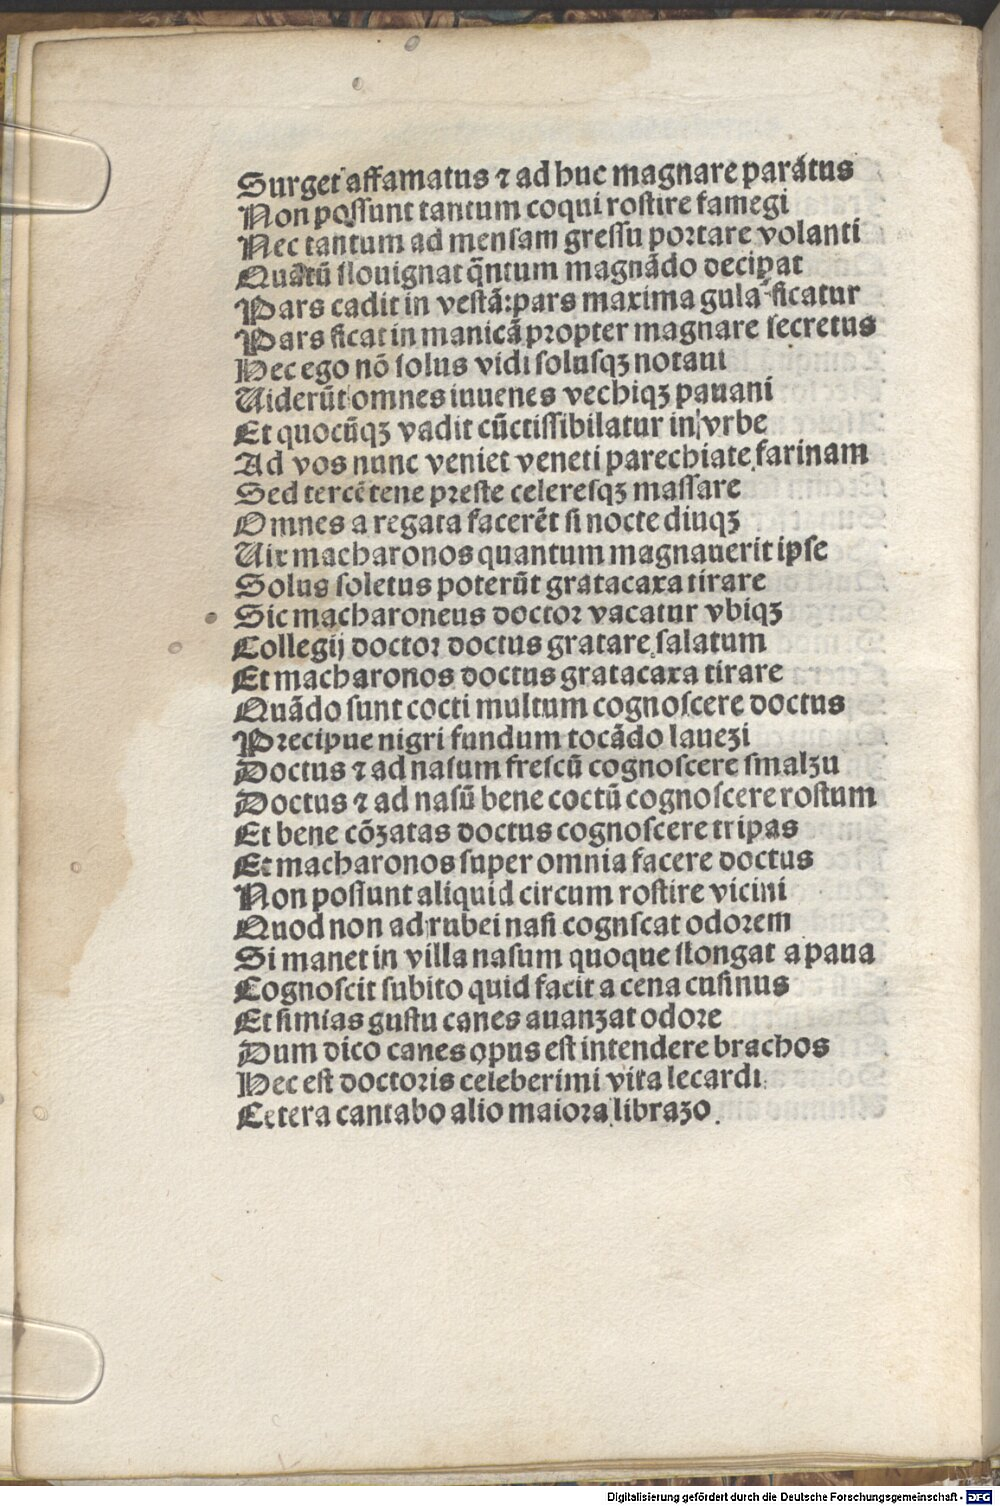 Surget affamatus ⁊ ad huc magnare paratus
Non possunt tantum coqui rostire famegi
Nec tantum ad mensam gressu portare volanti
Quātū slouignat qn̄tum magnādo decipat
Pars cadit in vestā: pars maxima gula ficatur
Pars ficat in manicā propter magnare secretus
Hec ego nō solus vidi solusqꝫ notaui
Uiderūt omnes iuuenes vechiqꝫ pauani
Et quocūqꝫ vadit cūctis sibilatur in vrbe
Ad vos nunc veniet veneti parechiate farinam
Sed tercētene preste celeresqꝫ massare
Omnes a regata facerēt si nocte diuqꝫ
Uix macharonos quantum magnauerit ipse
Solus soletus poterūt gratacaxa tirare
Sic macharoneus doctor vacatur vbiqꝫ
Collegij doctor doctus gratare salatum
Et macharonos doctus gratacaxa tirare
Quādo sunt cocti multum cognoscere doctus
Precipue nigri fundum tocādo lauezi
Doctus ⁊ ad nasum frescū cognoscere smalzu
Doctus ⁊ ad nasū bene coctū cognoscere rostum
Et bene cōzatas doctus cognoscere tripas
Et macharonos super omnia facere doctus
Non possunt aliquid circum rostire vicini
Quod non ad rubei nasi cognscat odorem
Si manet in villa nasum quoque slongat a paua
Cognoscit subito quid facit a cena cusinus
Et simias gustu canes auanzat odore
Dum dico canes opus est intendere brachos
Hec est doctoris celeberimi vita lecardi
Cetera cantabo alio maiora librazo.
Digitalisierung gefördert durch die Deutsche Forschungsgemeinschaft - DFG